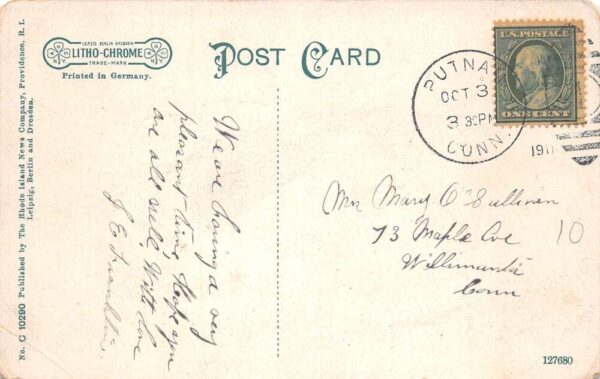 LEIPZIG BERLIN DRESDEN
LITHO-CHROME
TRADE-MARK
Printed in Germany.
POST CARD
U.S. POSTAGE
ONE CENT
PUTNA
OCT 3
3 30PM
CONN.
191
No. C 10290 Published by The Rhode Island News Company, Providence, R. I.
Leipzig, Berlin and Dresden.
We are having a very
pleasant time. Hope you
are all well. With love
J E Franklin.
Mrs Mary O'Sullivan
73 Maple Ave
Willimantic
Conn
10
127680